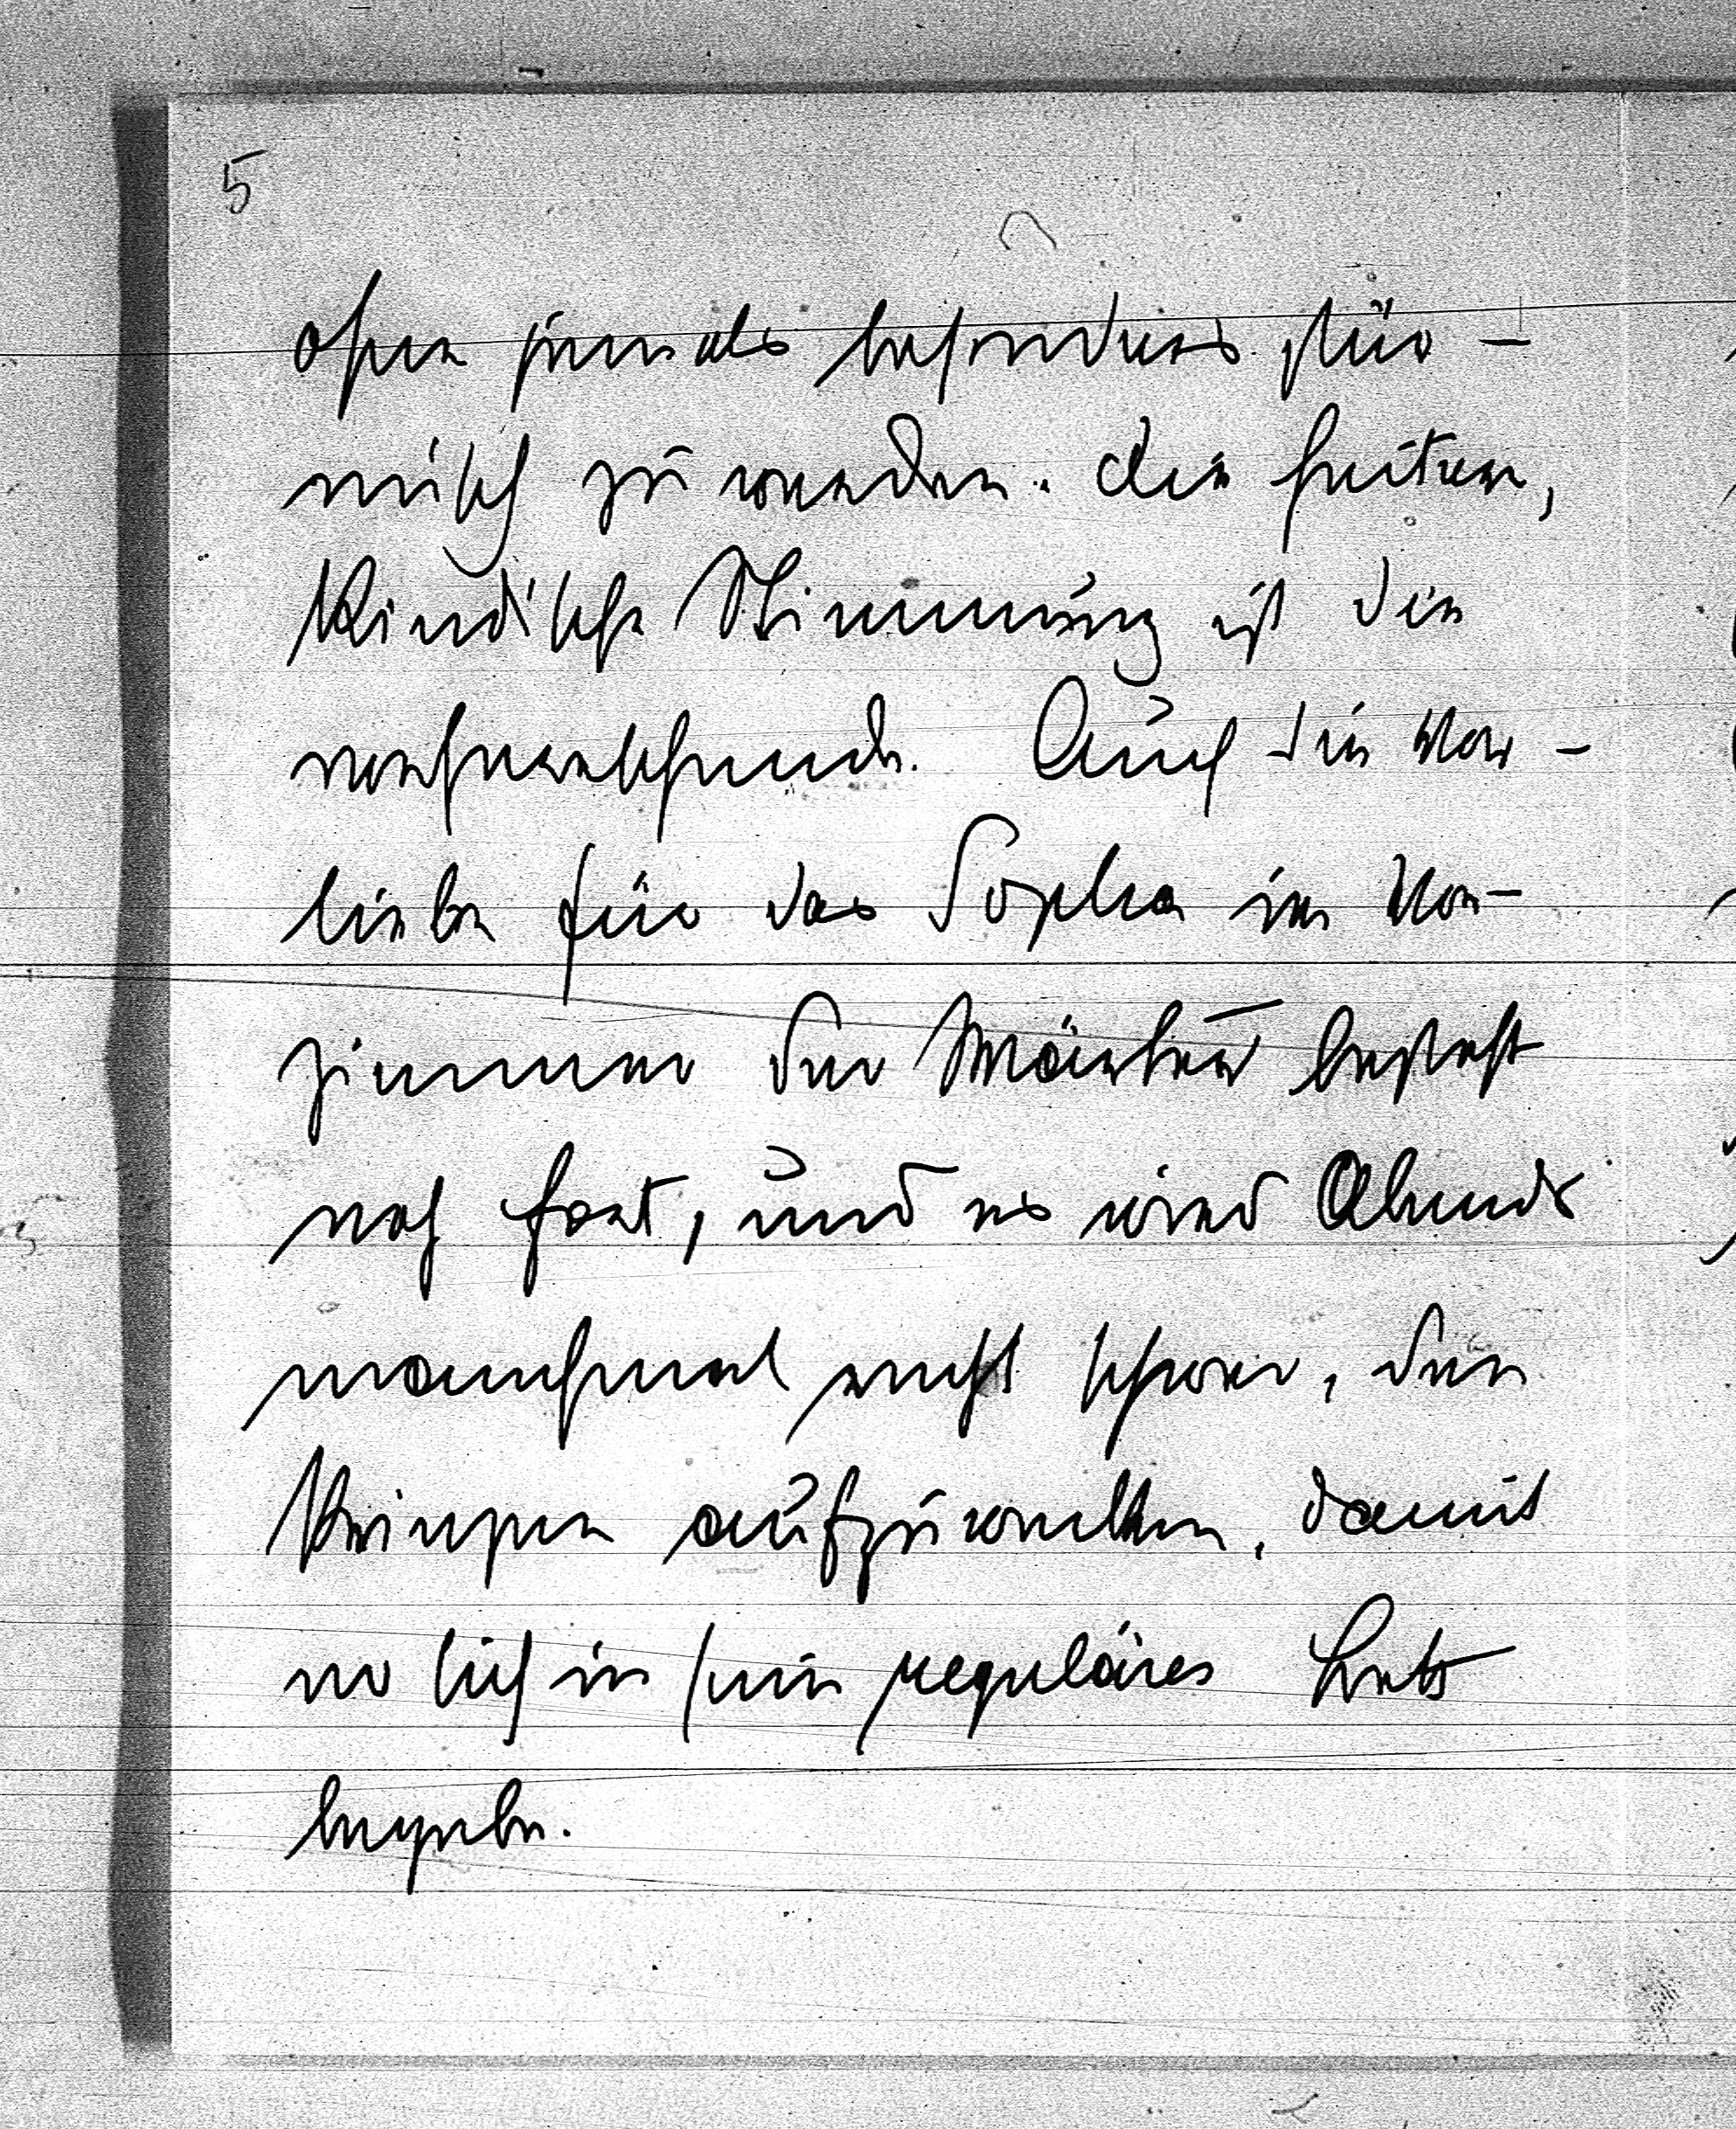 5
ohne jemals besonders stür-
misch zu werden. Die heitere,
kindische Stimmung ist die
vorherrschende. Auch die Vor-
liebe für das Sopha im Vor-
zimmer der Wärter besteht
noch fort, und es wird Abends
manchmal recht schwer, den
Prinzen aufzuwecken, damit
er sich in sein reguläres Bett
begebe.